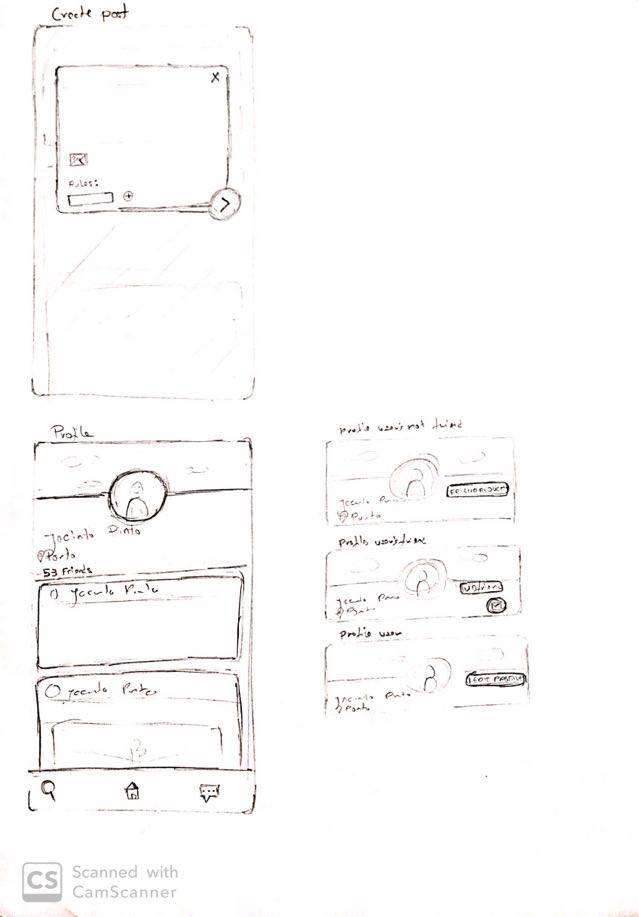 Create post
X
Rules:
Profile
Jacinto Pinto
Porto
53 Friends
Jacinto Pinto
Jacinto Pinto
profile user's not friend
Jacinto
Porto
profile user's friend
Jacinto
Porto
profile user
Jacinto Pinto
Porto
EDIT PROFILE
CS
Scanned with
CamScanner